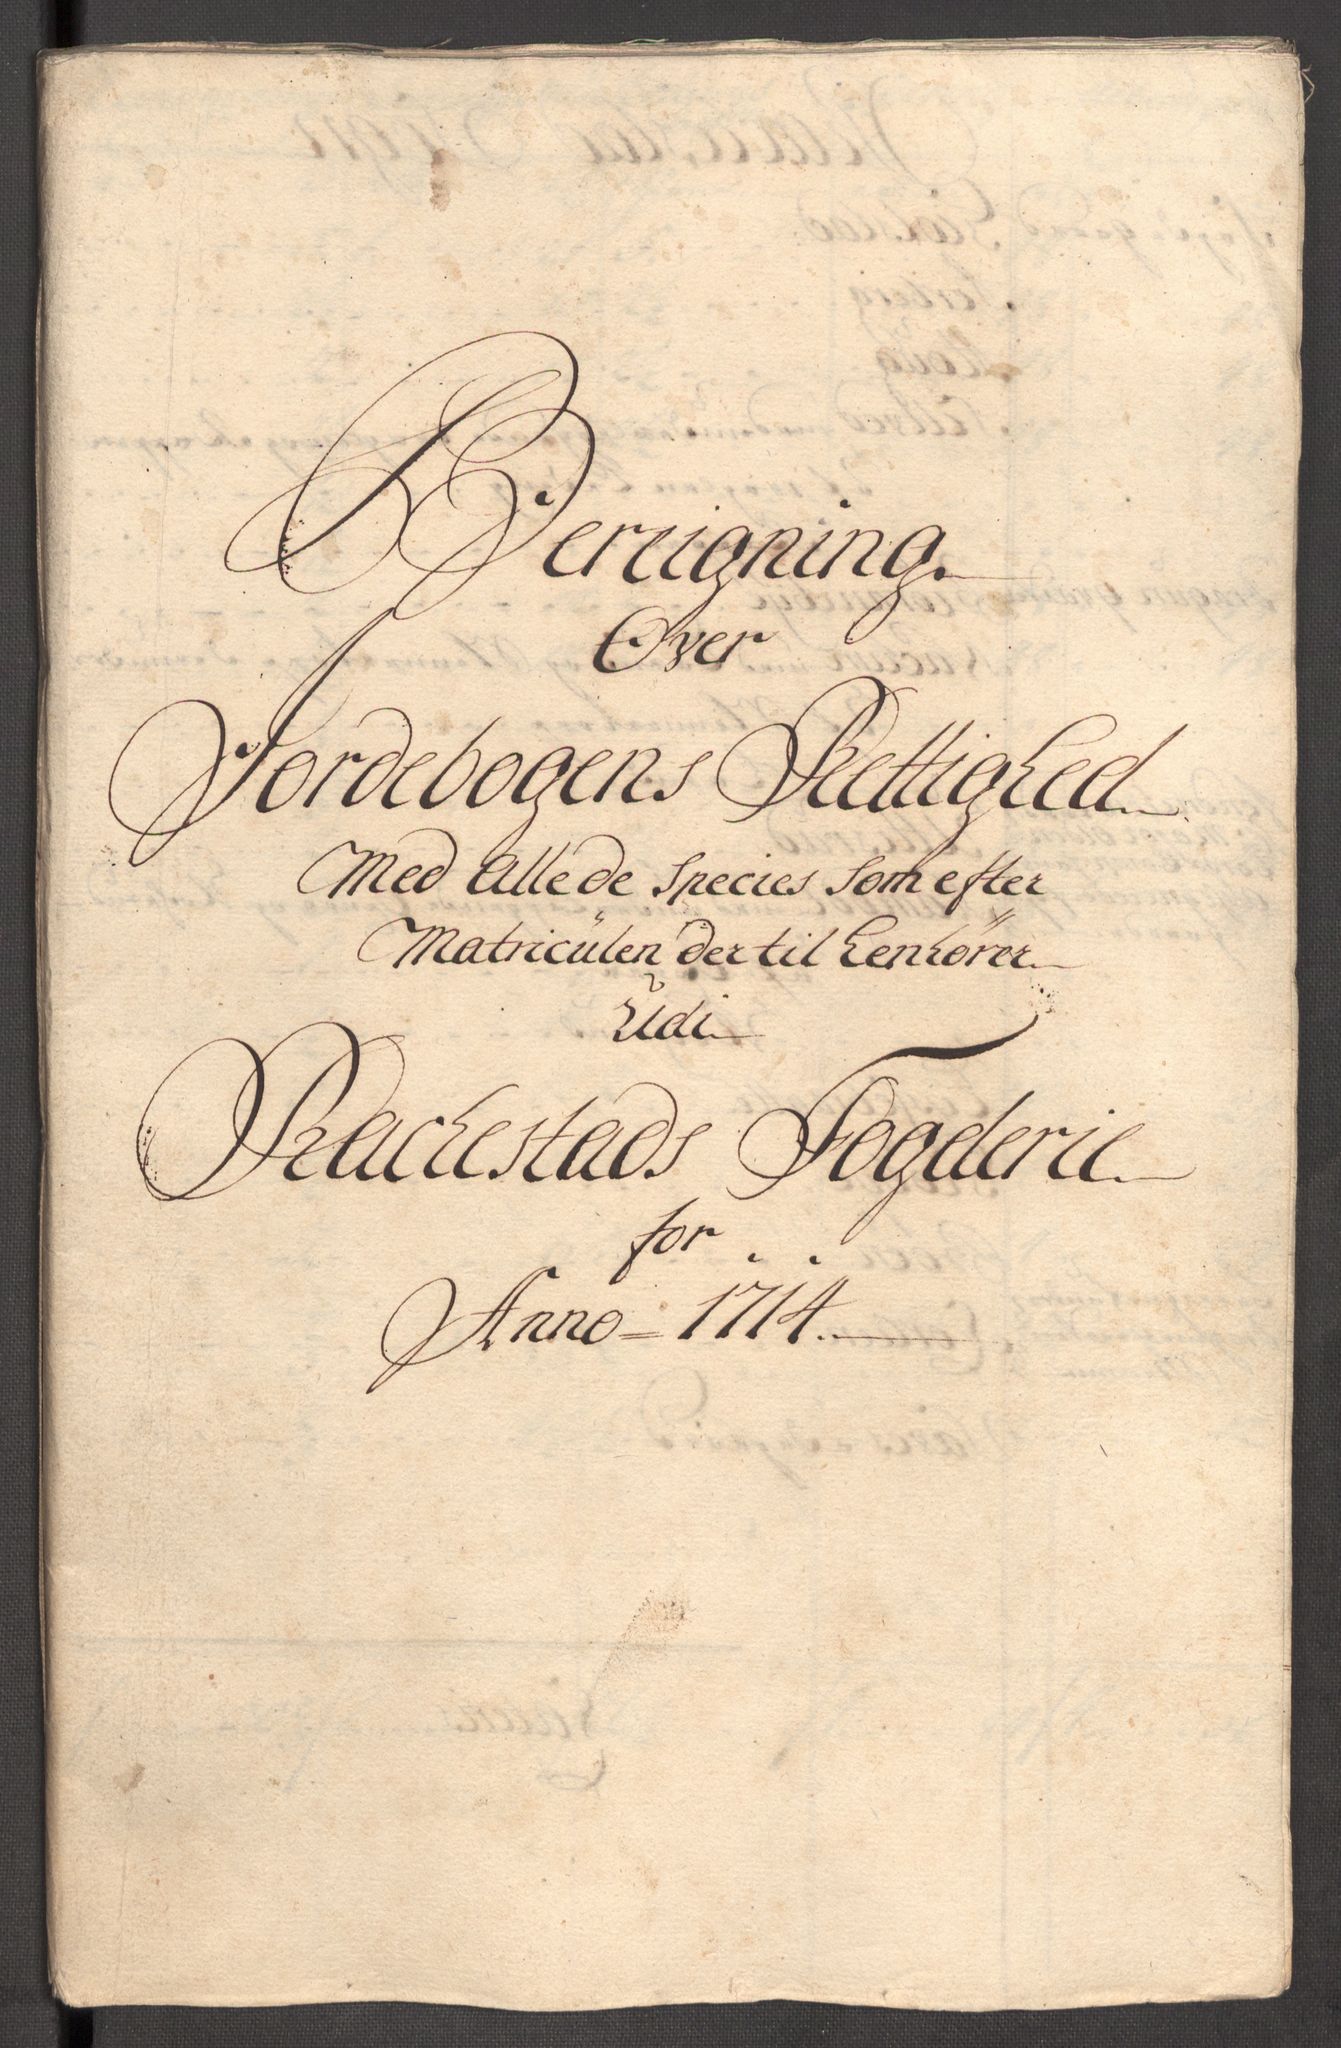 Bereigning
Over
Jordebogens Rettighed
Med Alle de Species Som efter
Matricülen der til henhörer
Udi
Rachestads Fogderie
for
Anno = 1714.